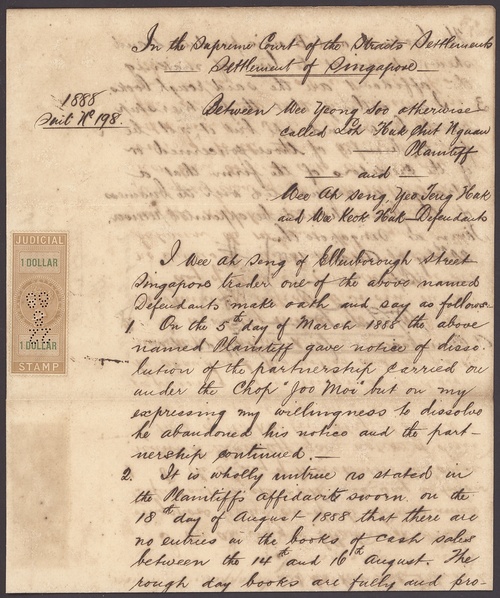 In the Supreme Court of the Straits Settlements
Settlement of Singapore
1888
Suit No 198.
Between Wee Yeong Soo otherwise
called Loh Hak Chit Nguan
Plaintiff
and
Wee Ah Seng, Yeo Teng Hak
and Wee Keok Hak Defendants
JUDICIAL
1 DOLLAR
1 DOLLAR
STAMP
I Wee Ah Seng of Ellenborough Street
Singapore trader one of the above named
Defendants make oath and say as follows
1 On the 5th day of March 1888 the above
named Plaintiff gave notice of disso-
lution of the partnership carried on
under the Chop "Joo Moi" but on my
expressing my willingness to dissolve
he abandoned his notice and the part-
nership continued. —
2. It is wholly untrue as stated in
the Plaintiffs affidavits sworn on the
18th day of August 1888 that there are
no entries in the books of cash sales
between the 14th and 16th August. The
rough day books are fully and pro-